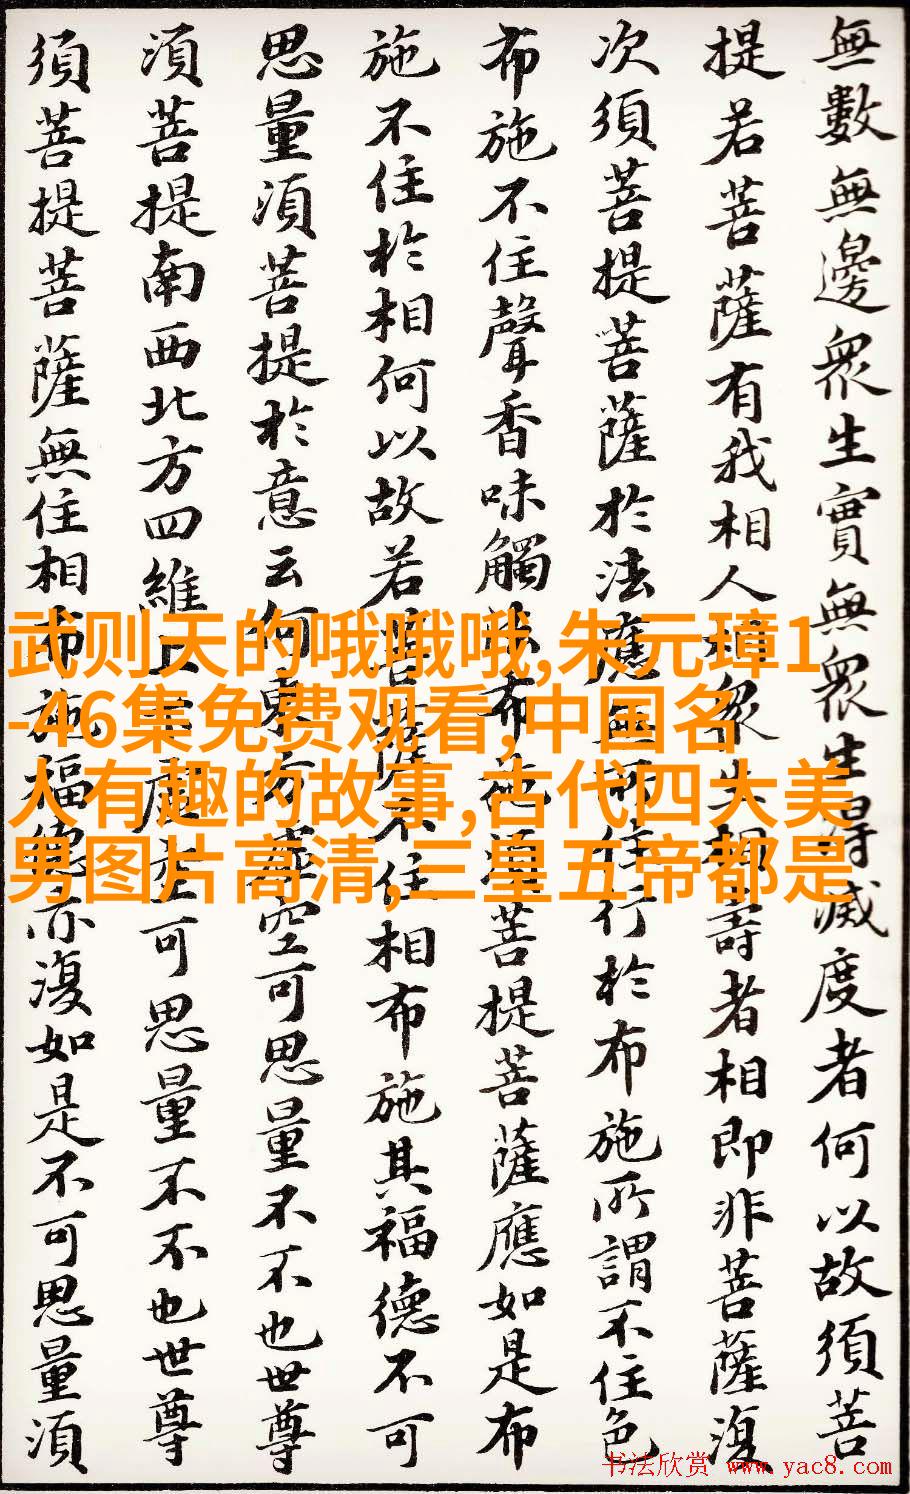 無數無邊眾生實無眾生得滅度者何以故須菩
提若菩薩有我相人相眾生相壽者相即非菩薩復
次須菩提菩薩於法應無所住行於布施所謂不住色
布施不住聲香味觸法布施須菩提菩薩應如是布
施不住於相何以故若菩薩不住相布施其福德不可
思量須菩提於意云何東方虛空可思量不不也世尊
須菩提南西北方四維上下虛空可思量不不也世尊
須菩提菩薩無住相布施福德亦復如是不可思量須
武则天的哦哦哦,朱元璋1
-46集免费观看,中国名
人有趣的故事,古代四大美
男图片高清,三皇五帝都是
书法欣赏 www.yac8.com